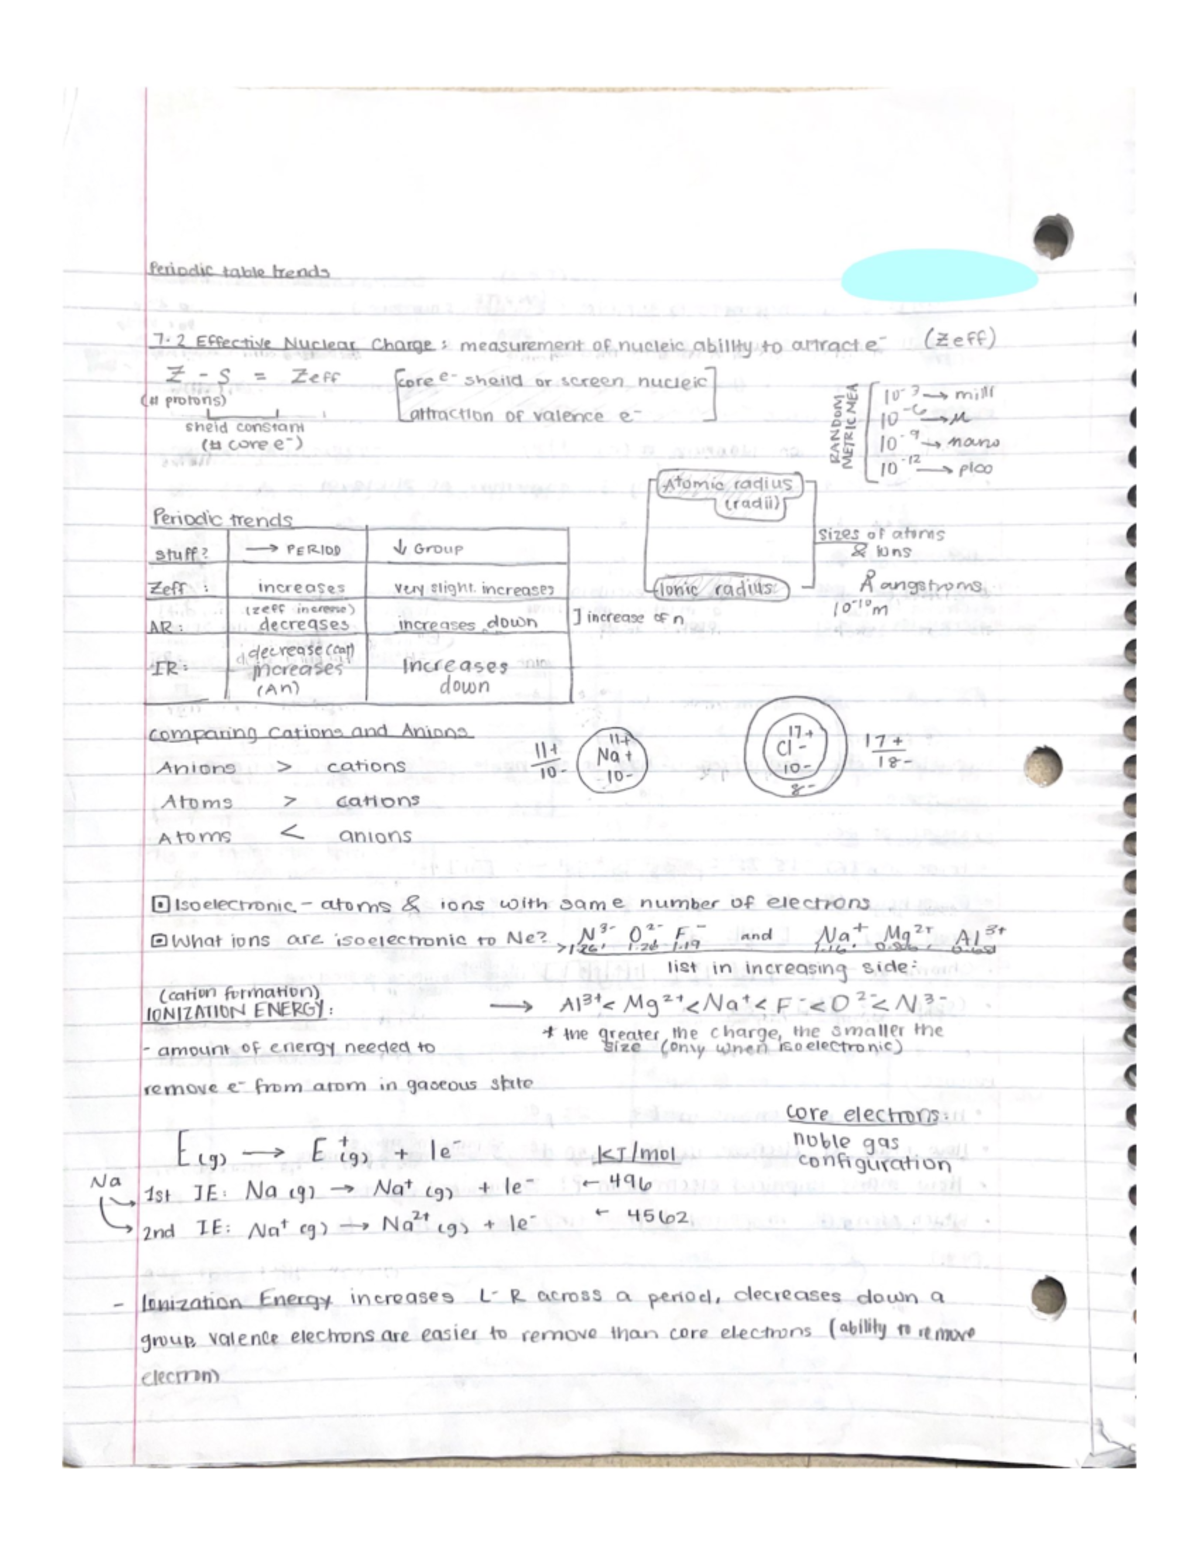 Periodic table trends
7.2 Effective Nuclear Charge: measurement of nucleic ability to attract e⁻ (Zeff)
Z - S = Zeff
(# protons)
sheild constant
(# core e⁻)
core e⁻ sheild or screen nucleic
attraction of valence e⁻
RANDOM
METRIC MEA
10⁻³ → milli
10⁻⁶ → μ
10⁻⁹ → nano
10⁻¹² → pico
Atomic radius
(radii)
Sizes of atoms
& Ions
Ionic radius:
Å angstroms
10⁻¹⁰m
Periodic trends
stuff? → PERIOD ↓ Group
Zeff : increases very slight increases
(zeff increase)
AR: decreases increases down ] increase of n
decrease (cat)
IR: increases Increases
(An) down
Comparing Cations and Anions
Anions > cations
Atoms > cations
Atoms < anions
11+
10-
11+
Na+
10-
17+
Cl-
10-
8-
17+
18-
Isoelectronic - atoms & ions with same number of electrons
What ions are isoelectronic to Ne? N³⁻ O²⁻ F⁻ and Na⁺ Mg²⁺ Al³⁺
1.26 1.19
list in increasing side:
→ Al³⁺ < Mg²⁺ < Na⁺ < F⁻ < O²⁻ < N³⁻
* the greater the charge, the smaller the
size (only when isoelectronic)
(cation formation)
IONIZATION ENERGY:
- amount of energy needed to
remove e⁻ from atom in gaseous state
core electrons:
noble gas
configuration
E(g) → E⁺(g) + 1e⁻ kJ/mol
Na
1st IE: Na (g) → Na⁺ (g) + 1e⁻ ← 496
2nd IE: Na⁺ (g) → Na²⁺ (g) + 1e⁻ ← 4562
- Ionization Energy increases L-R across a period, decreases down a
group, valence electrons are easier to remove than core electrons (ability to remove
electron)